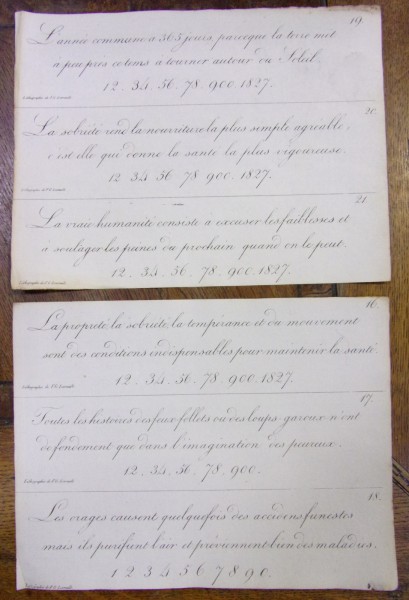 19.
L'année commune a 365 jours, parceque la terre met
à peu près ce tems à tourner autour du Soleil.
12. 34. 56. 78. 900. 1827.
Lithographie de
20.
La sobriété rend la nourriture la plus simple agréable,
c'est elle qui donne la santé la plus vigoureuse.
12. 34. 56. 78. 900. 1827.
Lithographie de
21.
La vraie humanité consiste à excuser les faiblesses et
à soulager les peines du prochain quand on le peut.
12. 34. 56. 78. 900. 1827.
Lithographie de
16.
La propreté, la sobriété, la tempérance et du mouvement
sont des conditions indispensables pour maintenir la santé.
12. 34. 56. 78. 900. 1827.
Lithographie de
17.
Toutes les histoires des feux-follets ou des loups-garoux n'ont
de fondement que dans l'imagination des peureux.
12. 34. 56. 78. 900.
Lithographie de
18.
Les orages causent quelquefois des accidens funestes
mais ils purifient l'air et préviennent bien des maladies.
1 2 3 4 5 6 7 8 9 0.
Lithographie de